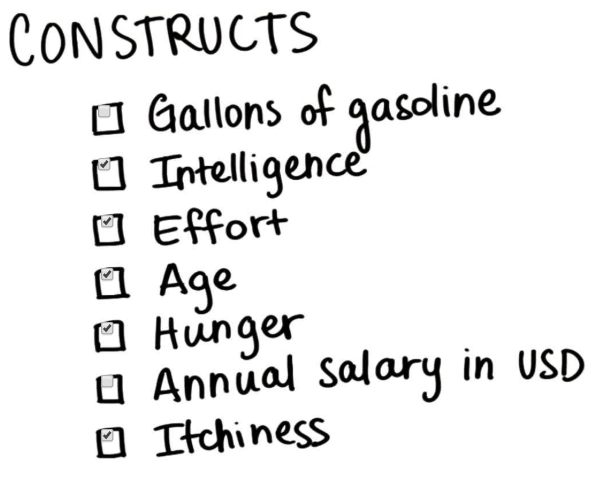 CONSTRUCTS
Gallons of gasoline
Intelligence
Effort
Age
Hunger
Annual salary in USD
Itchiness